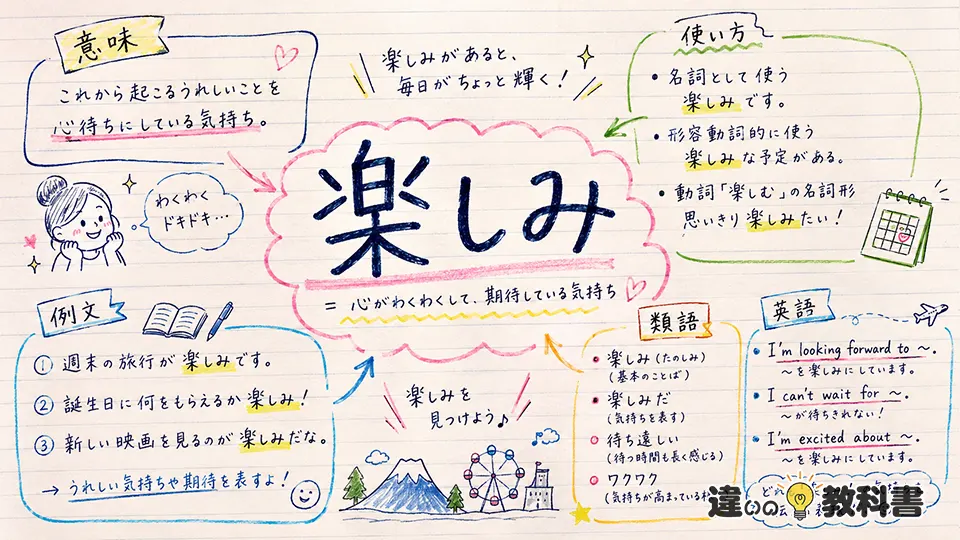 意味
これから起こるうれしいことを
心待ちにしている気持ち。
楽しみがあると、
毎日がちょっと輝く!
使い方
• 名詞として使う
楽しみです。
• 形容動詞的に使う
楽しみな予定がある。
• 動詞「楽しむ」の名詞形
思いきり楽しみたい!
わくわく
ドキドキ…
楽しみ
= 心がわくわくして、期待している気持ち
例文
① 週末の旅行が楽しみです。
② 誕生日に何をもらえるか楽しみ!
③ 新しい映画を見るのが楽しみだな。
→ うれしい気持ちや期待を表すよ!
楽しみを
見つけよう♪
類語
• 楽しみ(たのしみ)
(基本のことば)
• 楽しみだ
(気持ちを表す)
○ 待ち遠しい
(待つ時間も長く感じる)
○ ワクワク
(気持ちが高まっている
英語
• I'm looking forward to ~.
~を楽しみにしています。
• I can't wait for ~.
~が待ちきれない!
• I'm excited about ~.
~を楽しみにしています。
違いの教科書